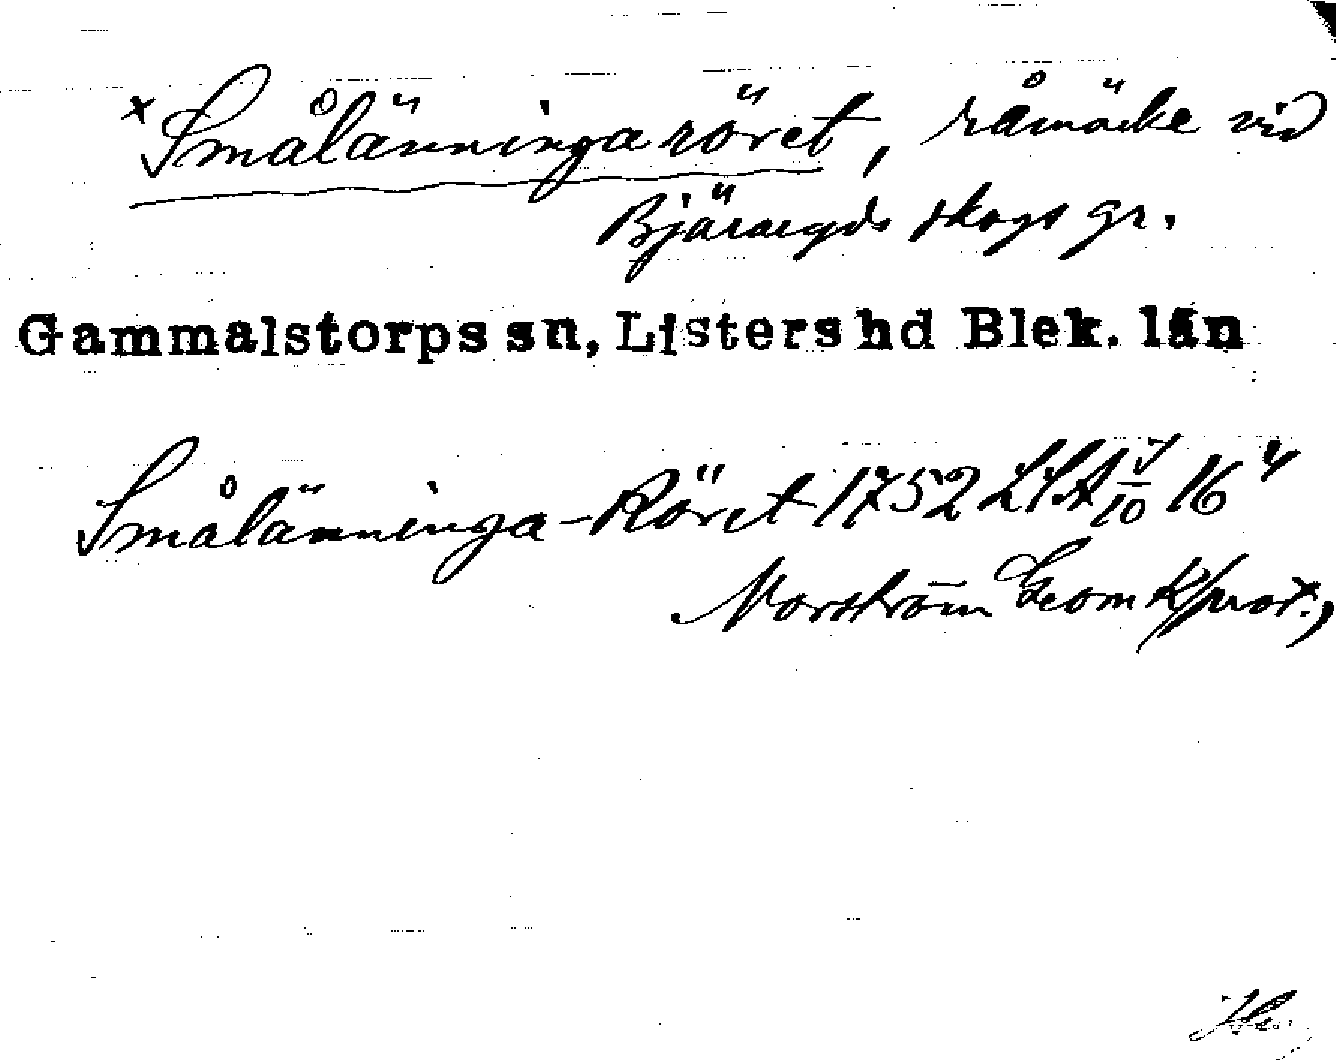 × Smålänningaröret, råmärke vid
Bjäraryds skogs gr.
Gammalstorps sn, Listers hd Blek. län
Smålänninga-Röret 1752 LSA 16
Norström Geom